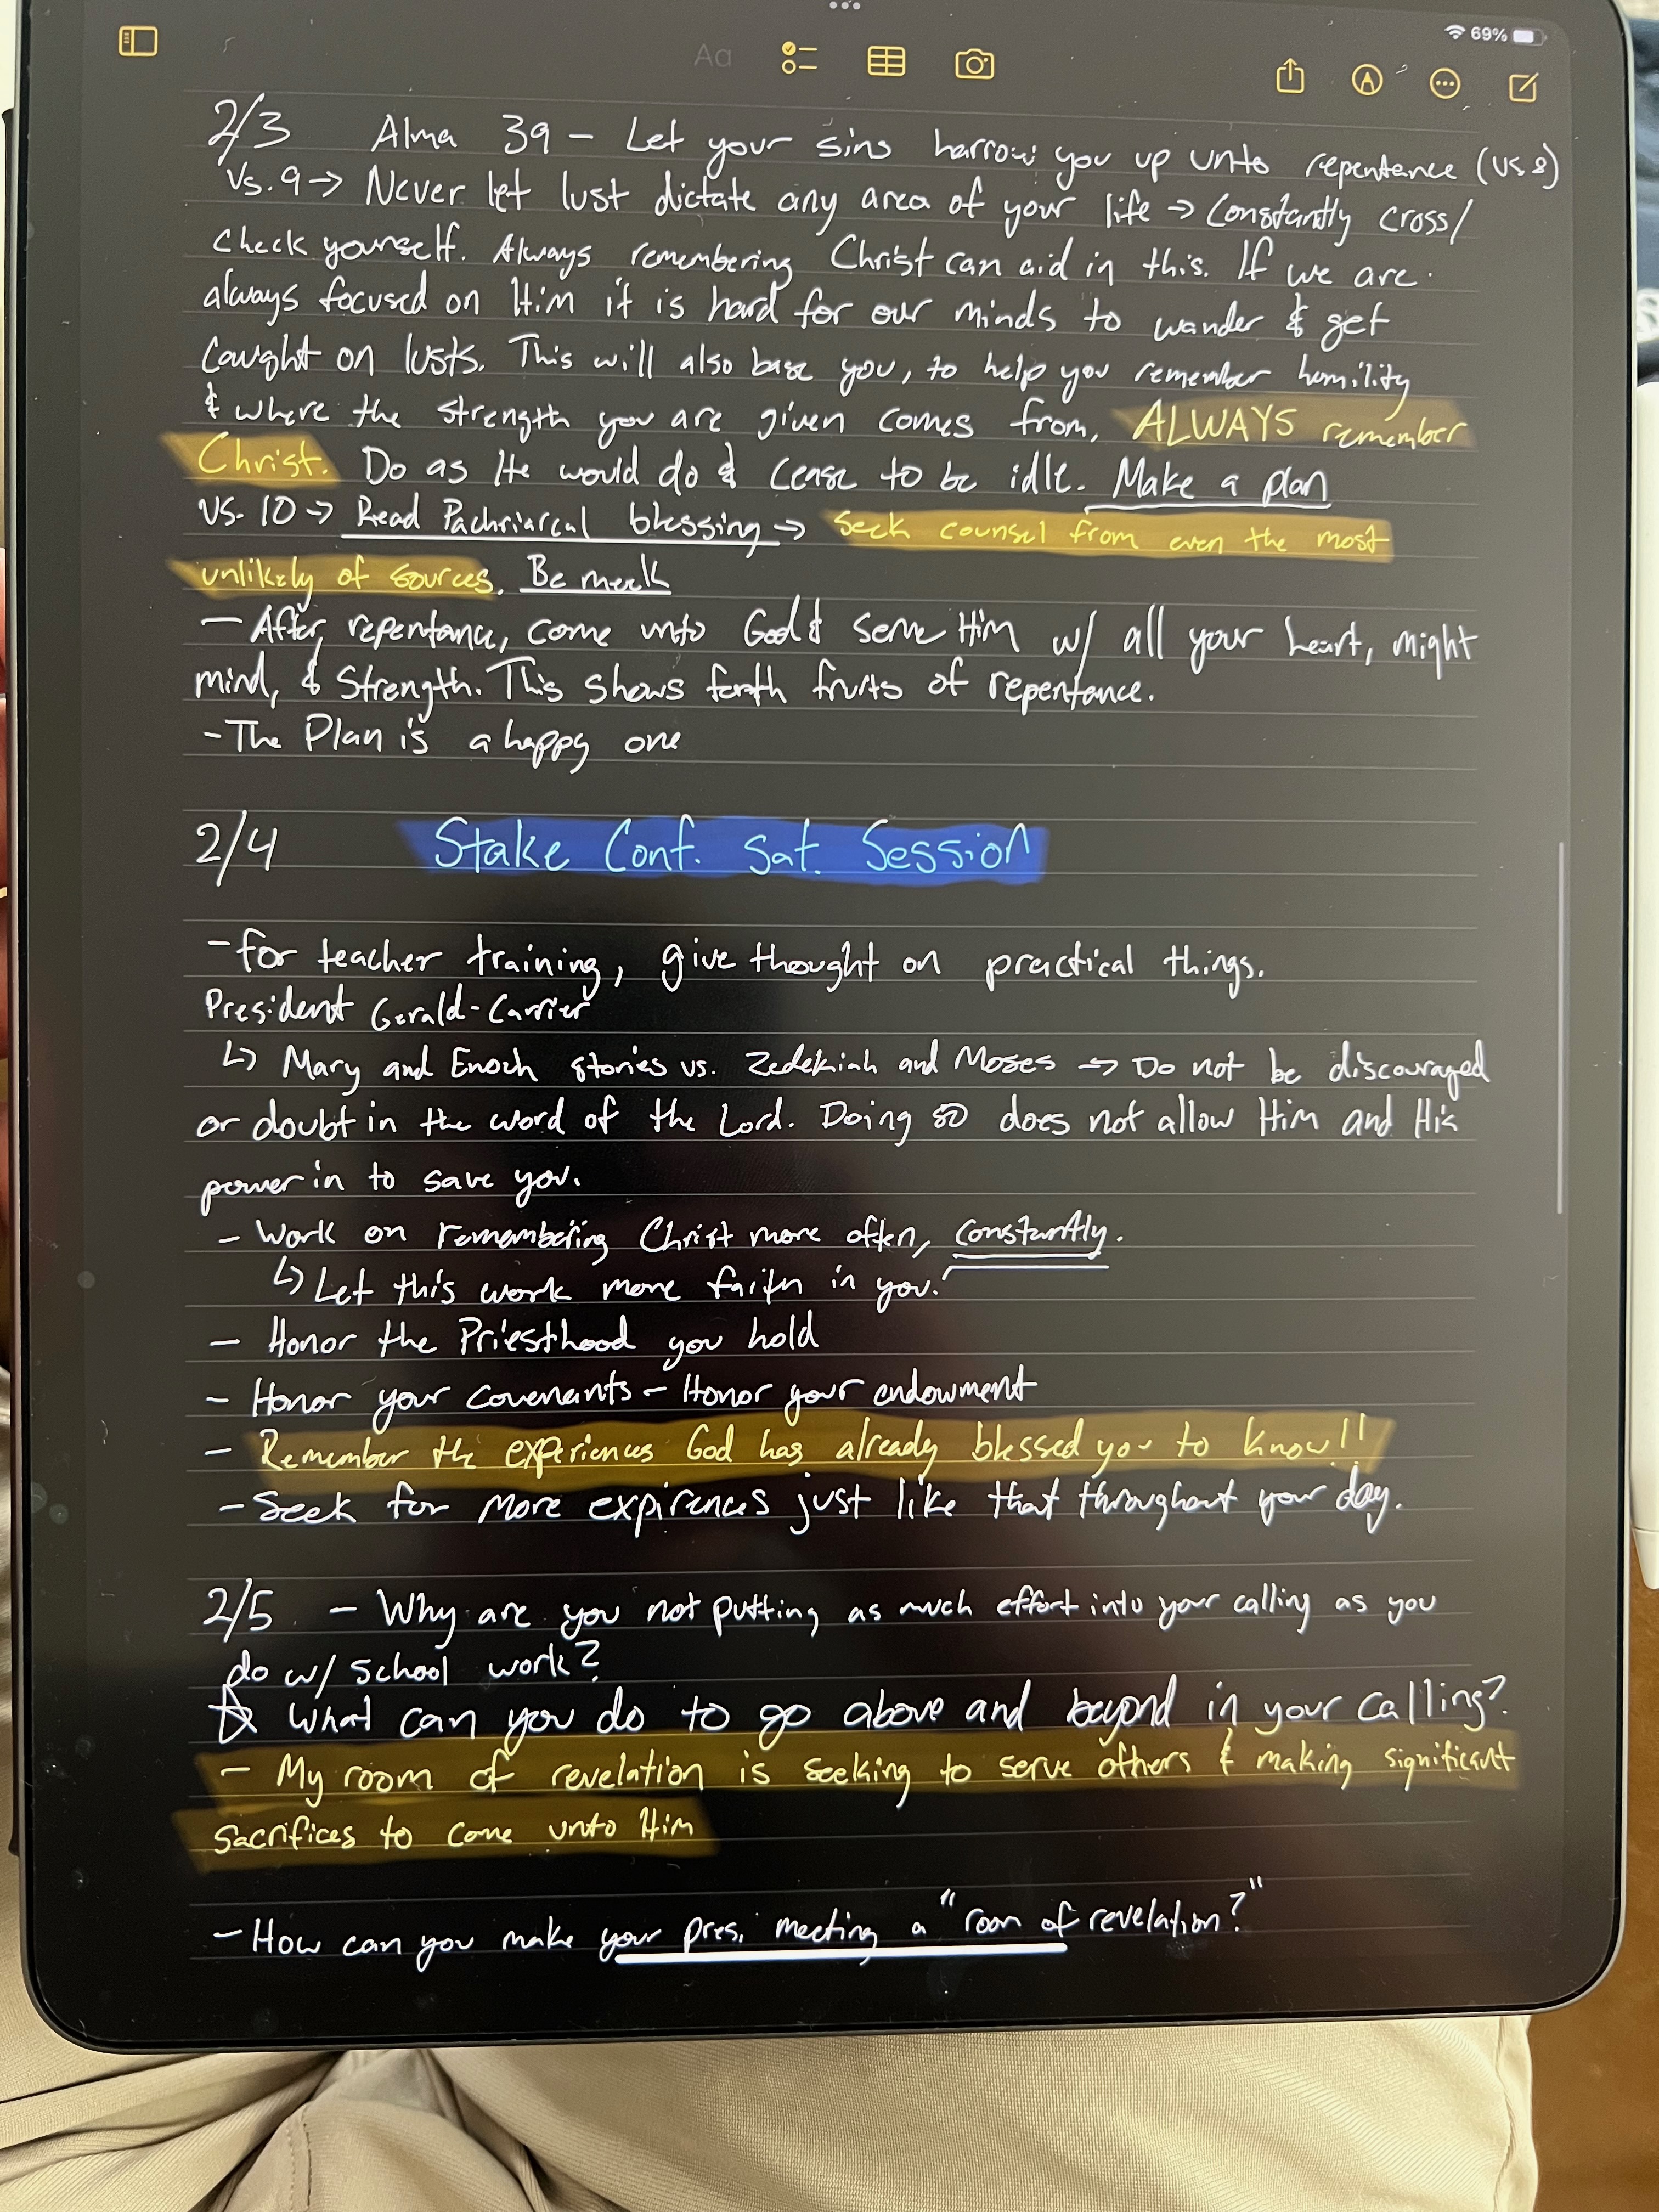 69%
Aa
2/3 Alma 39 - Let your sins harrow you up unto repentance (vs 8)
Vs. 9 → Never let lust dictate any area of your life → Constantly cross/
check yourself. Always remembering Christ can aid in this. If we are
always focused on Him it is hard for our minds to wander & get
caught on lusts. This will also base you, to help you remember humility
& where the strength you are given comes from. ALWAYS remember
Christ. Do as He would do & cease to be idle. Make a plan
Vs. 10 → Read Pachriarcal blessing → Seek counsel from even the most
unlikely of sources. Be meek
- After repentance, come unto God & serve Him w/ all your heart, might
mind, & Strength. This shows forth fruits of repentance.
- The Plan is a happy one
2/4 Stake Conf. Sat. Session
- for teacher training, give thought on practical things.
President Gerald-Carrier
↳ Mary and Enoch stories vs. Zedekiah and Moses → Do not be discouraged
or doubt in the word of the Lord. Doing so does not allow Him and His
power in to save you.
- Work on remembering Christ more often, constantly.
↳ Let this work more faith in you!
- Honor the Priesthood you hold
- Honor your covenants - Honor your endowment
- Remember the experiences God has already blessed you to know!!
- Seek for more expirences just like that throughout your day.
2/5 - Why are you not putting as much effort into your calling as you
do w/ school work?
☆ What can you do to go above and beyond in your calling?
- My room of revelation is seeking to serve others & making significant
sacrifices to come unto Him
- How can you make your pres. meeting a "room of revelation?"